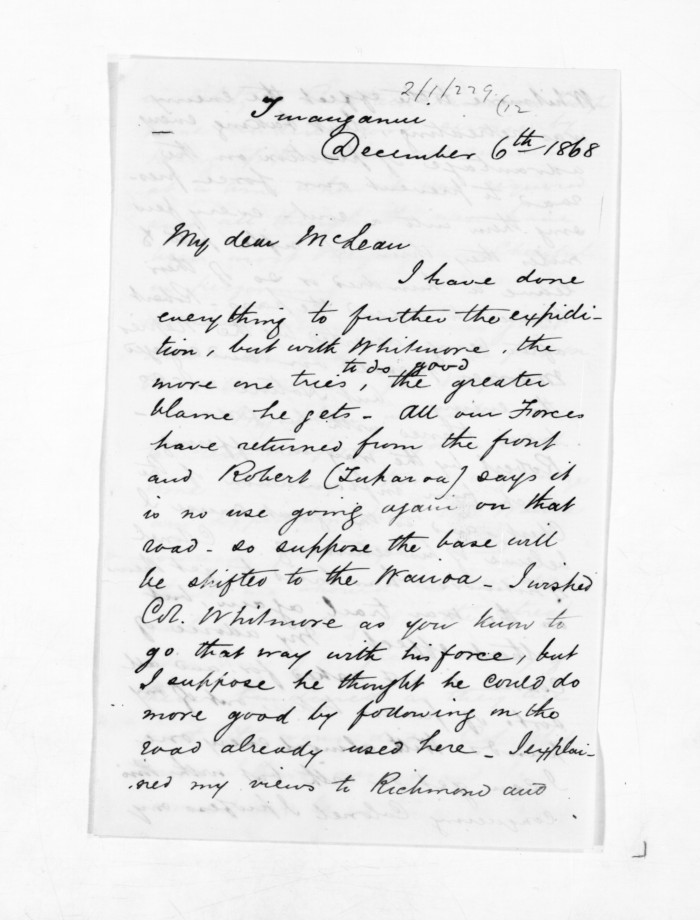 2/1/229/12
Turanganui
December 6th 1868
My dear McLean
I have done
everything to further the expidi-
tion, but with Whitmore, the
to do good
more one tries, the greater
blame he gets - All our Forces
have returned from the front
and Robert (Tukaroa) says it
is no use going again on that
road - so suppose the base will
be shifted to the Wairoa - I wished
Col. Whitmore as you know to
go that way with his force, but
I suppose he thought he could do
more good by following on the
road already used here - I explai-
ned my views to Richmond and